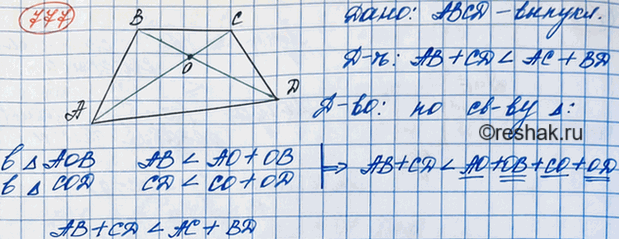 777
B
C
O
A
D
Дано: ABCD - выпукл.
Д-ть: AB + CD < AC + BD
Д-во: по св-ву Δ:
© reshak.ru
в Δ AOB AB < AO + OB
в Δ COD CD < CO + OD
⇒ AB + CD < AO + OB + CO + OD
AB + CD < AC + BD